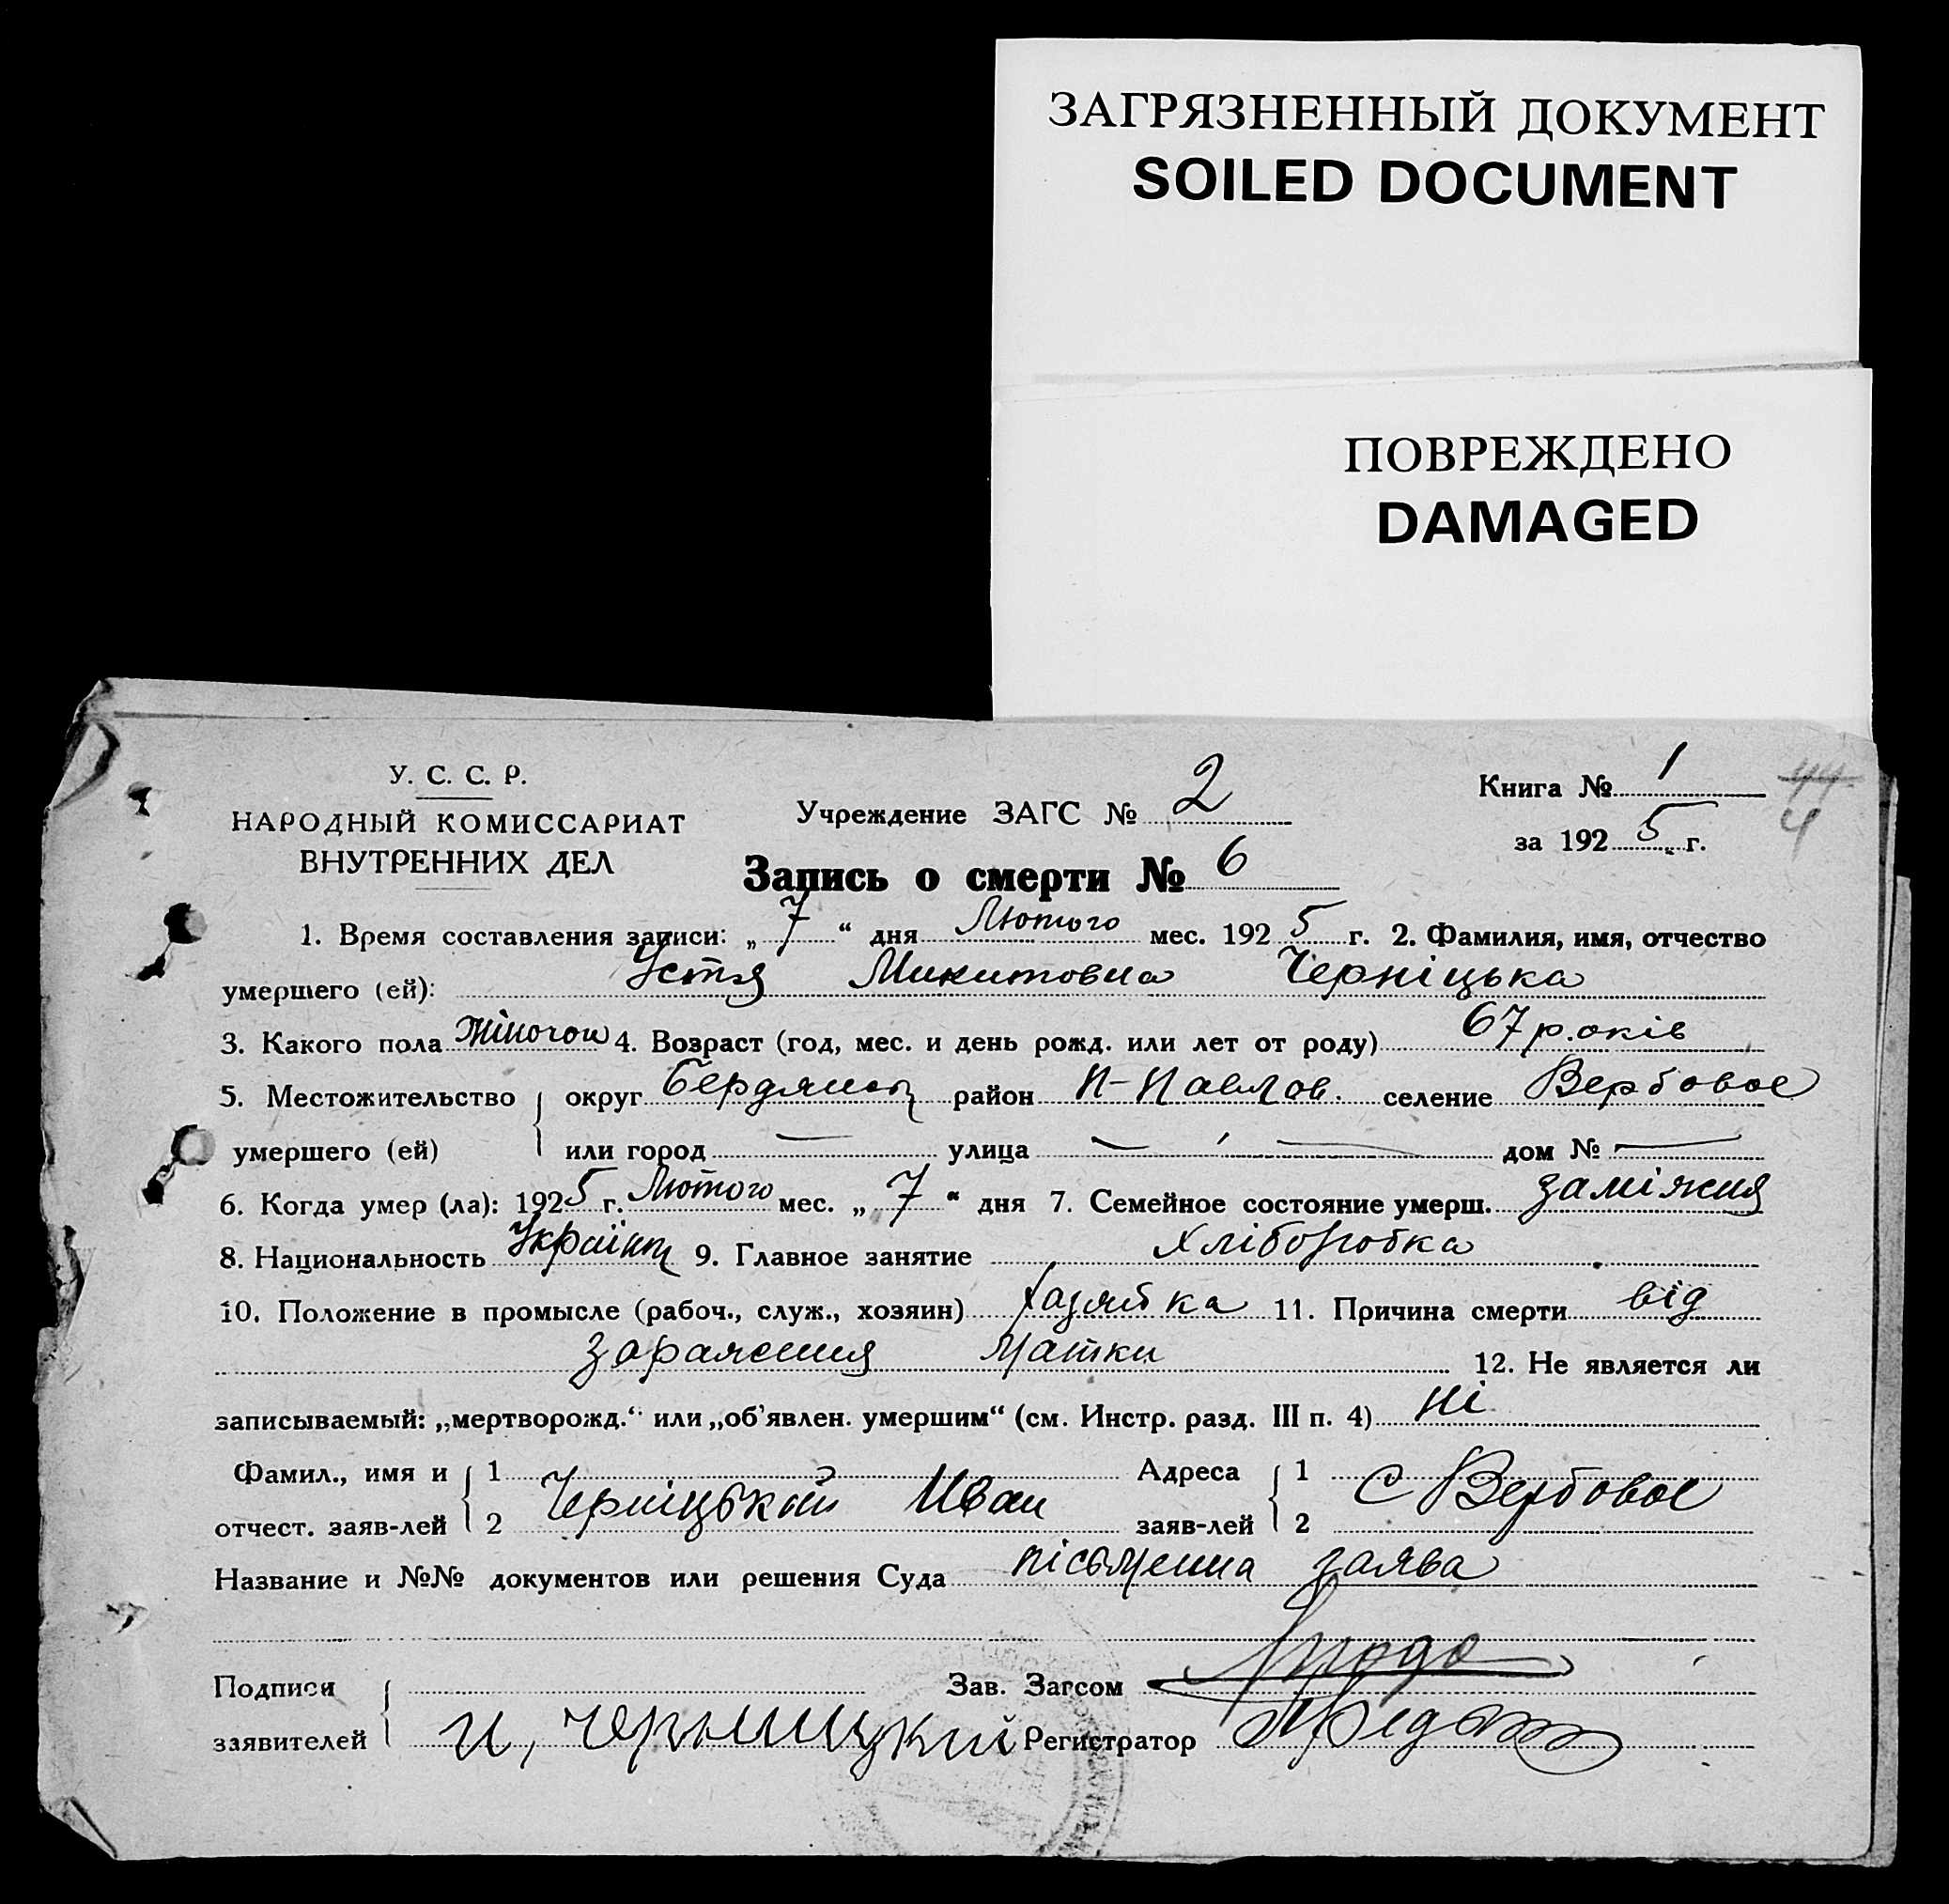 ЗАГРЯЗНЕННЫЙ ДОКУМЕНТ
SOILED DOCUMENT
ПОВРЕЖДЕНО
DAMAGED
У. С. С. Р.
НАРОДНЫЙ КОМИССАРИАТ
ВНУТРЕННИХ ДЕЛ
Учреждение ЗАГС № 2
Книга № 1
за 1925 г.
44
4
Запись о смерти № 6
1. Время составления записи: „ 7 “ дня Лютого мес. 1925 г. 2. Фамилия, имя, отчество
умершего (ей): Устя Микитовна Черніцька
3. Какого пола жіночои 4. Возраст (год, мес. и день рожд. или лет от роду) 67 років
5. Местожительство округ Бердянск район П-Павлов. селение Вербовое
умершего (ей) или город — улица — дом № —
6. Когда умер (ла): 1925 г. Лютого мес. „ 7 “ дня 7. Семейное состояние умерш. заміжня
8. Национальность Україн 9. Главное занятие хліборобка
10. Положение в промысле (рабоч., служ., хозяин) хазяйка 11. Причина смерти від
зараження матки 12. Не является ли
записываемый: „мертворожд.“ или „об’явлен. умершим“ (см. Инстр. разд. III п. 4) ні
Фамил., имя и 1 Адреса 1
Черніцький Иван С Вербовое
отчест. заяв-лей 2 заяв-лей 2
Название и №№ документов или решения Суда письменна заява
Подписи Зав. Загсом
заявителей И, Черныцкий Регистратор